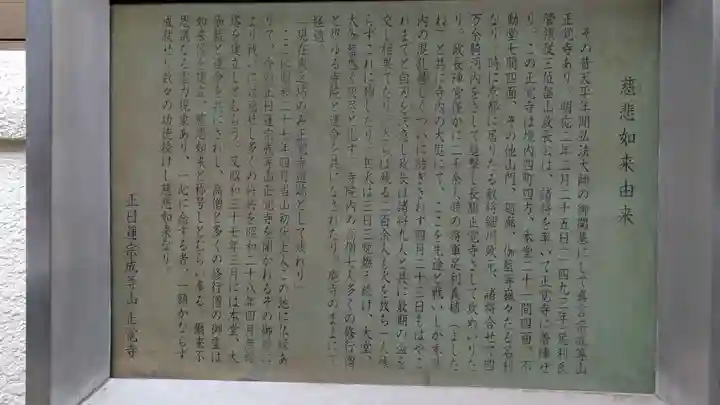 慈悲如来由来
その昔天平年間弘法大師の御開基にして真言宗成等山
正覚寺あり。明応二年二月二十五日(一四九三年)足利氏
管領従三位畠山政長公は、諸将を率いて正覚寺に着陣せ
り。この正覚寺は境内四町四方、本堂二十一間四面、不
動堂七間四面、その他山門、廻廊、伽藍等巍々たる名刹
なり。時に京都に居りたる敵将細川政元、諸将合せて四
万余騎河内をさして進撃し長駆正覚寺さして攻めいりた
り。政長陣営僅かに二千余人時の将軍足利義稙(よした
ね)と共に寺内の大庭にて、ここを先途と戦いしが余り
内の混乱激しくついに防ぎきれず四月二十三日もはやこ
れまでと自刃を決意し政長は諸将九人と共に最期の盃を
交し相果てたり。さらば残る二百余人も火を放ち一人残
らずこれに殉じたり。兵火は三日三晩燃え続け、大堂、
大伽藍悉く灰燼と化す。寺院内の高僧七人多くの修行僧
とゆゆる寺院と運命を共になされたり。廃寺のままにして
経過。
「現在東之坊のみ正覚寺遺跡として残れり」
ここに昭和二十七年四月当山初代上人この地に仏縁あ
りて、今の正日蓮宗成等山正覚寺を開かれるその御時に
より戦いに討死せし多くの将兵を昭和二十八年四月無縁
塔を建立しとむらう。又昭和三十七年三月には本堂、大
伽藍と運命を共にされし、高僧と多くの修行僧の御霊は
如来像を建立、慈悲如来と称号しとむらい奉る。爾来不
思議なる霊力現象あり、一心に念ずる者、一願かならず
成就せり数々の功徳授けし慈悲如来なり。
正日蓮宗成等山 正覚寺